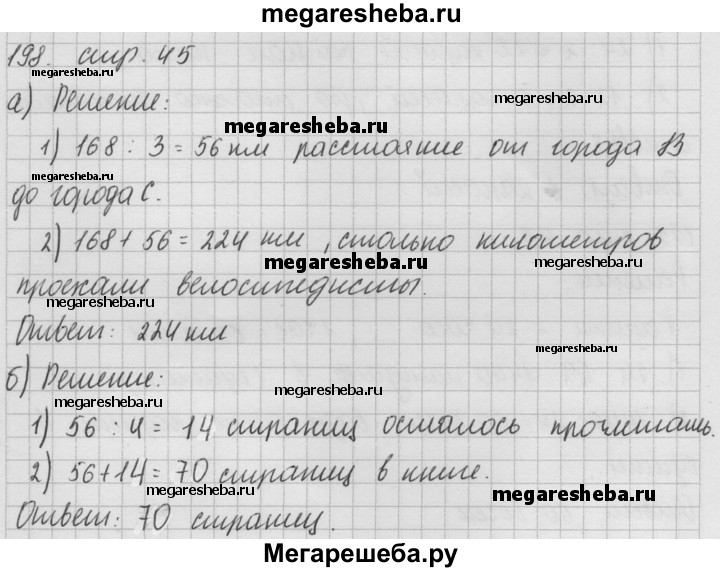 megaresheba.ru
198. стр. 45
megaresheba.ru
а) Решение:
megaresheba.ru
megaresheba.ru
1) 168 : 3 = 56 км расстояние от города В
megaresheba.ru
до города С.
2) 168 + 56 = 224 км, столько километров
megaresheba.ru
megaresheba.ru
проехали велосипедисты.
megaresheba.ru
Ответ: 224 км
megaresheba.ru
б) Решение:
megaresheba.ru
megaresheba.ru
1) 56 : 4 = 14 страниц осталось прочитать.
2) 56 + 14 = 70 страниц в книге.
megaresheba.ru
megaresheba.ru
Ответ: 70 страниц.
Мегарешеба.ру